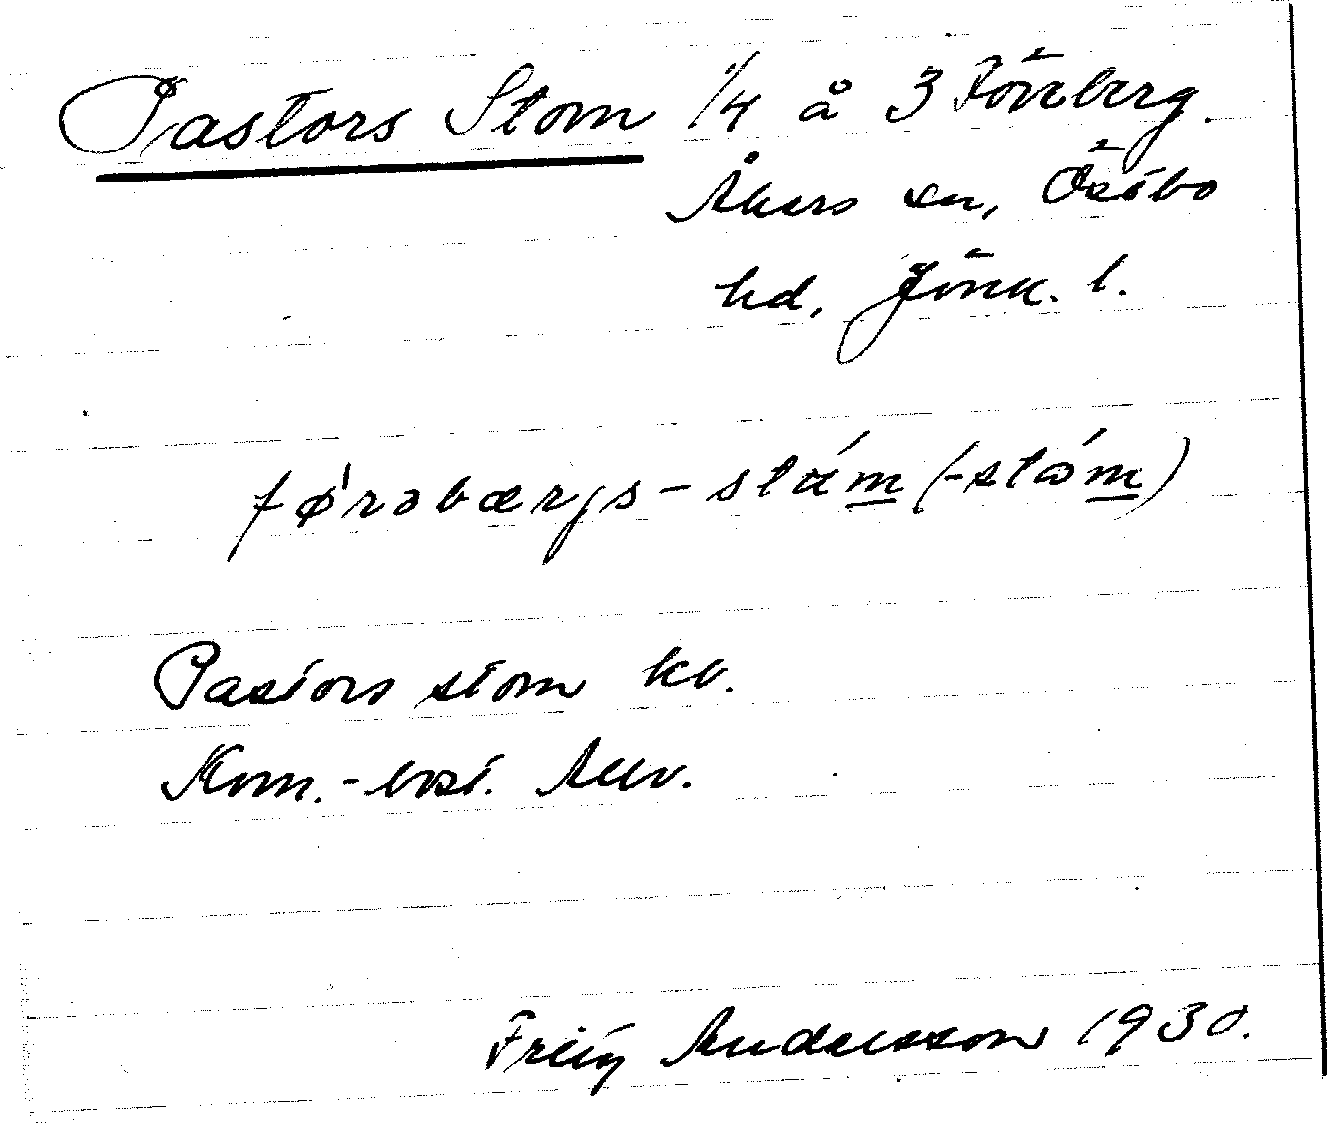 Pastors Stom 1/4 å 3 Föreberg.
Åkers sn, Östbo
hd, Jönk. l.
førəbærjs-stám (-ståm)
Pastors stom kv.
Kom.-bost. Allv.
Frejy Andersson 1930.